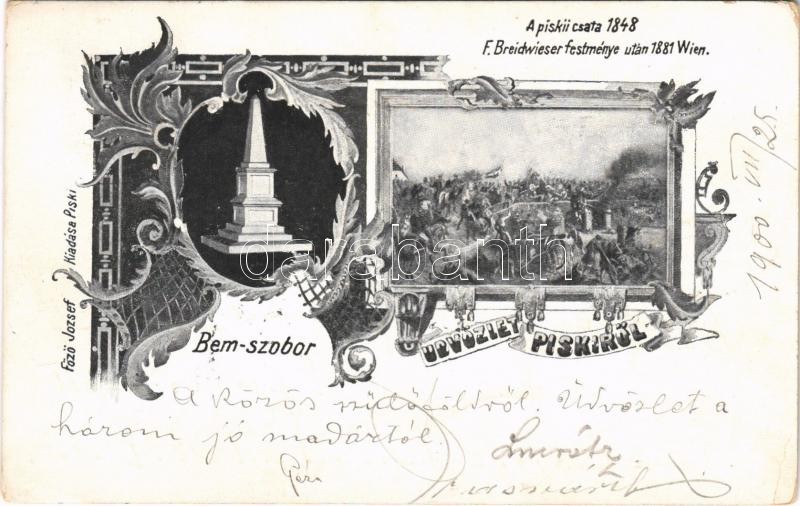 A piskii csata 1848
F. Breidwieser festménye után 1881 Wien.
Főző József Kiadása Piski
darabanth
Bem-szobor
ÜDVÖZLET PISKIRŐL
1900. VII/25.
A közös szülőföldről. Üdvözlet a
három jó madártól.